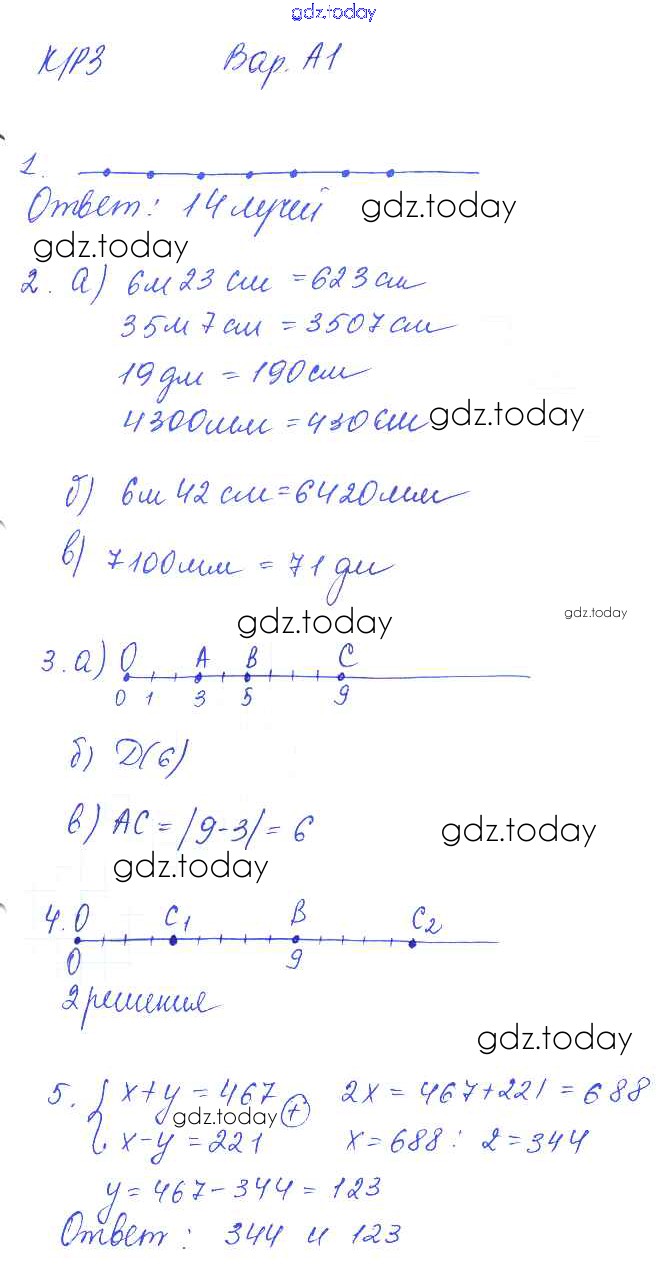 gdz.today
К/Р3 Вар. А1
1.
Ответ: 14 лучей gdz.today
gdz.today
2. а) 6м 23 см = 623 см
35м 7 см = 3507 см
19 дм = 190 см
4300 мм = 430 см gdz.today
б) 6м 42 см = 6420 мм
в) 7100 мм = 71 дм
gdz.today gdz.today
3. а) O A B C
0 1 3 5 9
б) D(6)
в) AC = |9-3| = 6 gdz.today
gdz.today
4. O C1 B C2
0 9
2 решения
gdz.today
5. { x+y = 467 (+) 2x = 467+221 = 688
gdz.today
x-y = 221 x = 688 : 2 = 344
y = 467-344 = 123
Ответ: 344 и 123